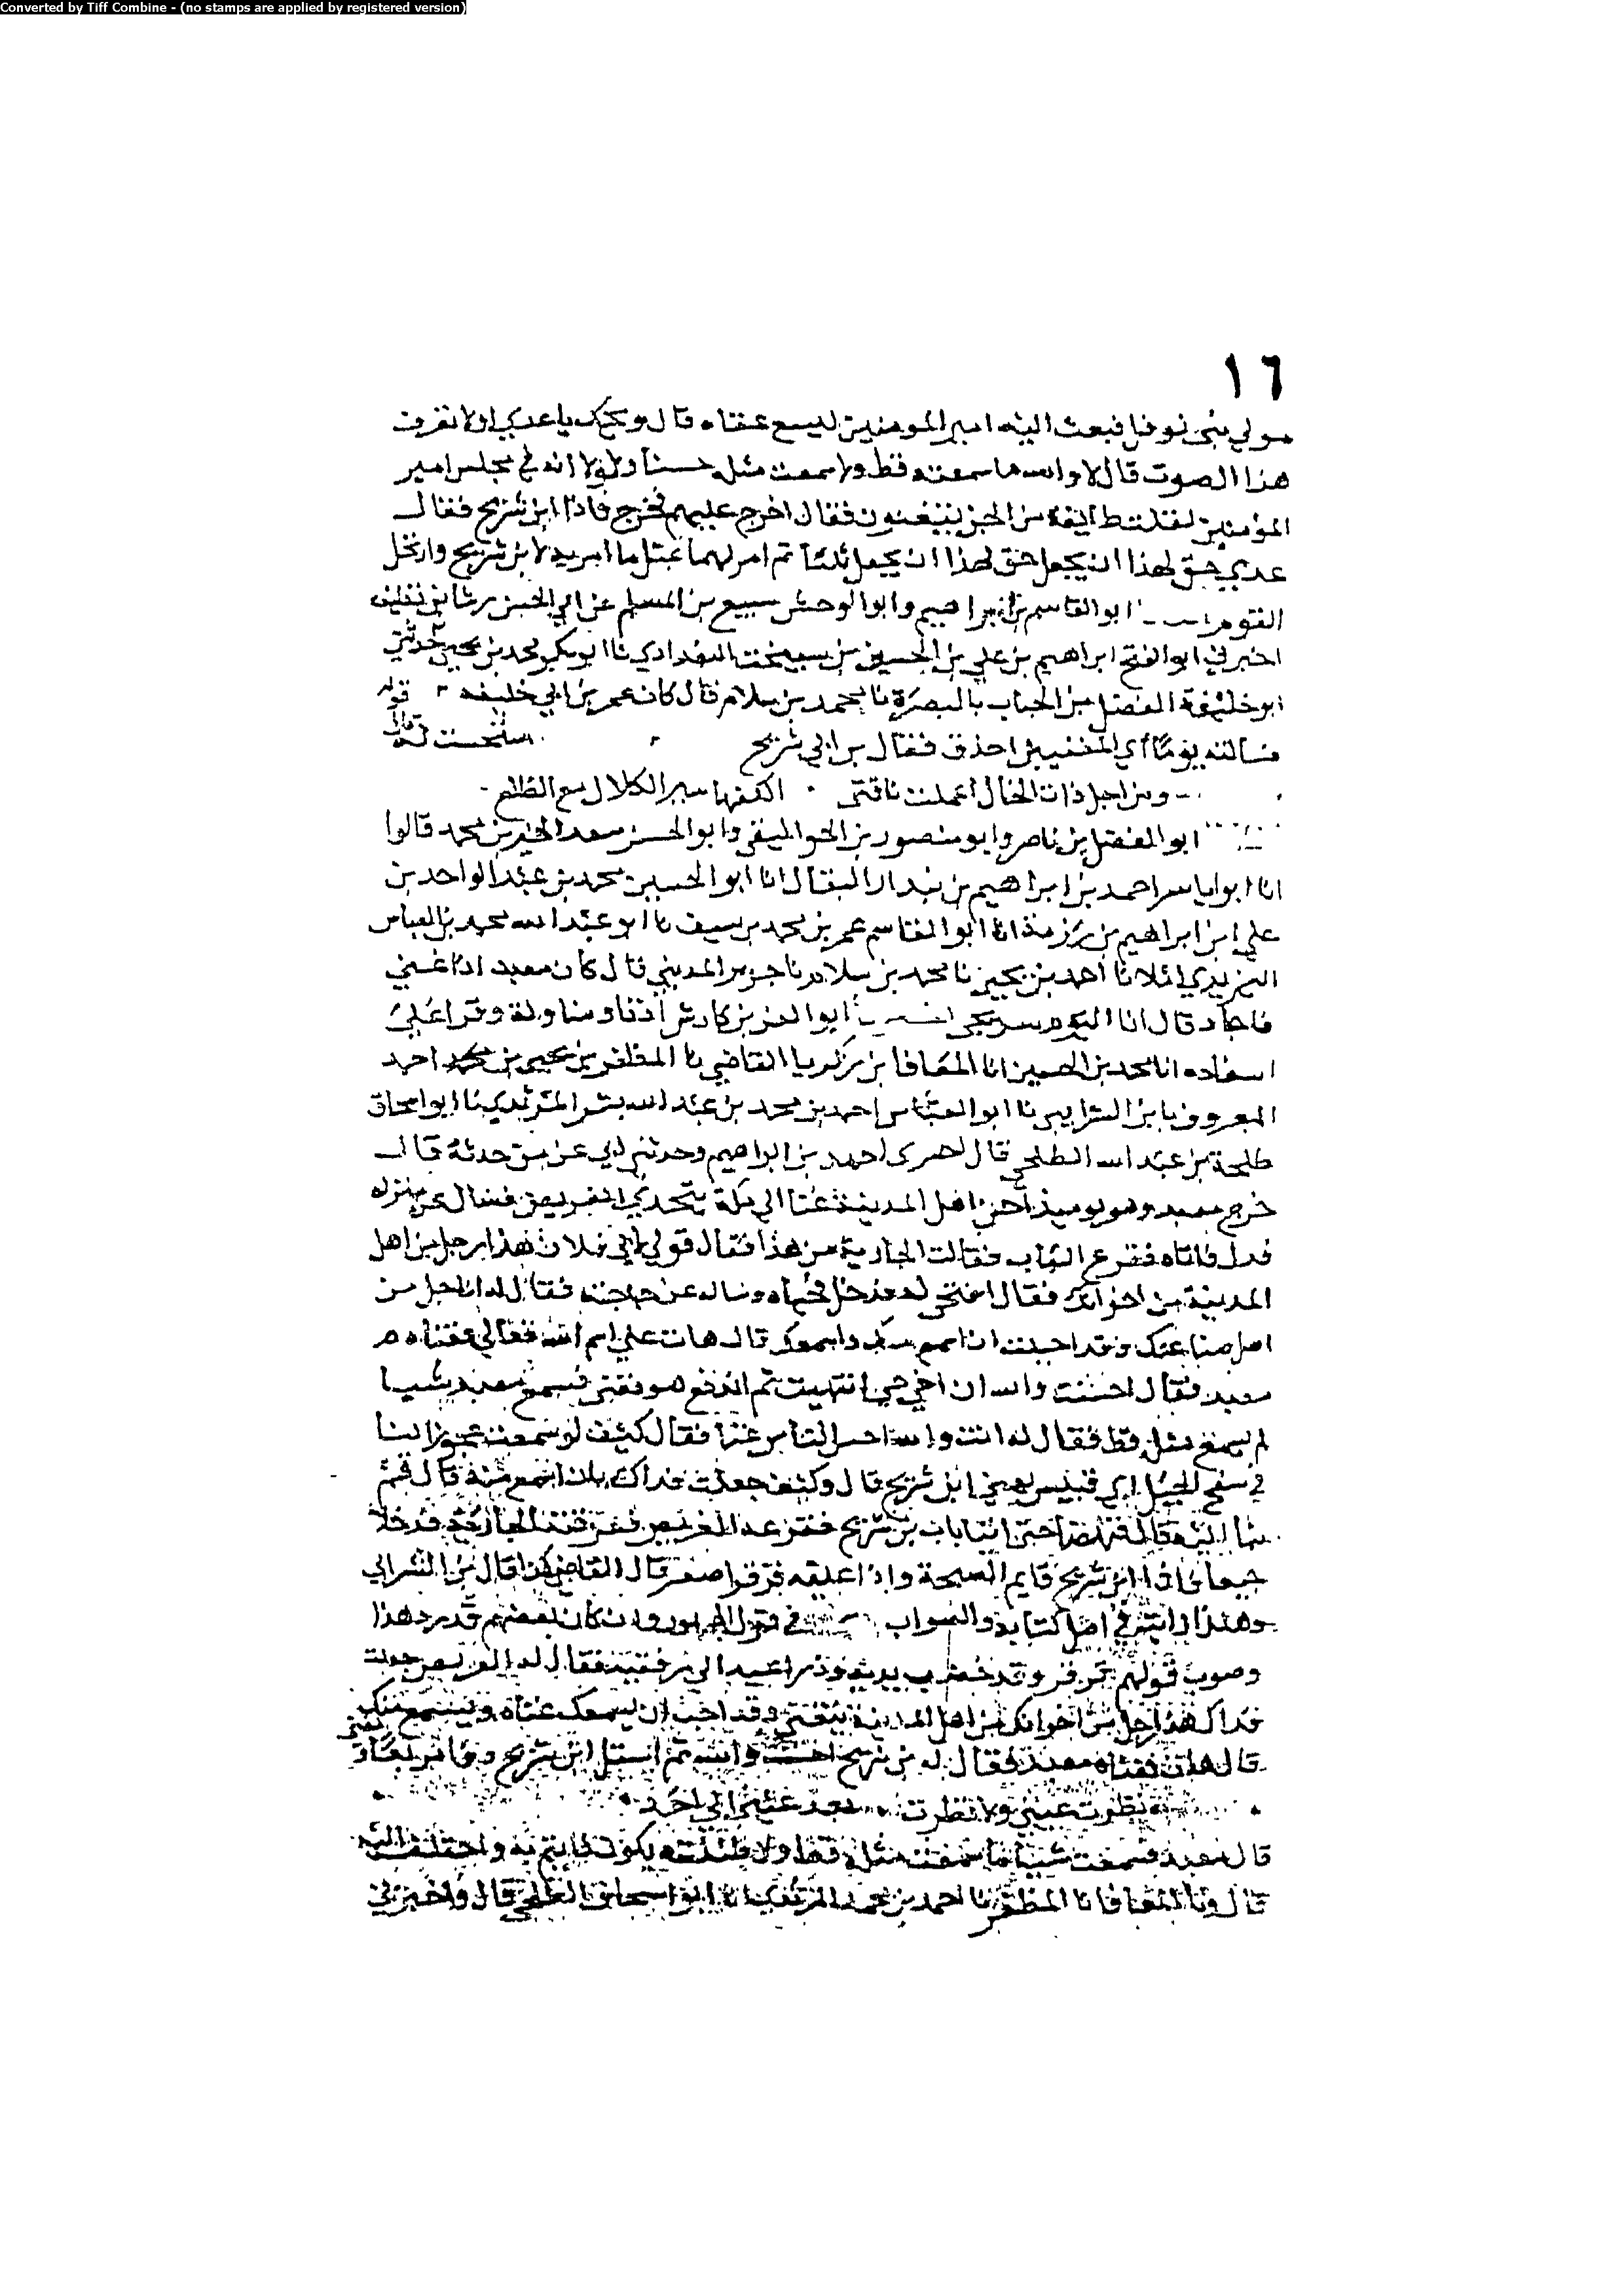 Converted by Tiff Combine - (no stamps are applied by registered version)
١٦
مولي بني نوفل فبعث اليه امير المومنين ليسمع غناه قال ويحك يا عدي اولا تعرف
هذا الصوت قال لا والله ما سمعته قط ولا سمعت مثله حسنا ولولا انه في مجلس امير
المؤمنين لقلت طايفة من الجن يتغنون فقال اخرج عليهم فخرج فاذا ابن سريج فقال
عدي حق لهذا ان يحمل حق لهذا ان يحمل ثلاثا ثم امر لهما بمثل ما امر به لابن سريج وارتحل
القوم ابو القاسم بن ابراهيم وابو الوحش سبيع بن المسلم عن ابي الحسن رشا بن نظيف
اخبرني ابو الفتح ابراهيم بن علي بن الحسين بن سيبخت البغدادي نا ابو بكر محمد بن يحيى حدثني
ابو خليفة الفضل بن الحباب بالبصرة نا محمد بن سلام قال كان عمر بن ابي خليفة
فسالته يوما اي المغنيين احذق فقال بن ابي سريج
ومن اجل ذات الخال اعملت ناقتي اكلفها سير الكلال مع الظلع
ابو الفضل بن ناصر وابو منصور بن الجواليقي وابو الحسن سعد الخير بن محمد قالوا
انا ابو ياسر احمد بن ابراهيم بن بندار البقال انا ابو الحسين محمد بن عبد الواحد بن
علي بن ابراهيم بن رزمة انا ابو القاسم عمر بن محمد بن سيف نا ابو عبد الله محمد بن العباس
اليزيدي املا نا احمد بن يحيى نا محمد بن سلام نا جرير المديني قال كان معبد اذا غني
فاجاد قال انا اليوم سريجي ابو العز بن كادش اذنا ومناولة وقرا علي
اسناده انا محمد بن الحسين انا المعافا بن زكريا القاضي نا المظفر بن يحيى بن احمد
المعروف بابن الشرابي نا ابو العباس احمد بن محمد بن عبد الله بن بشر المرثدي نا ابو اسحاق
طلحة بن عبد الله الطلحي قال اخبرني احمد بن ابراهيم وحدثني ابي عن من حدثه قال
خرج معبد وهو يوميذ احسن اهل المدينة غنا الي مكة يتحدي الغريض فسال عن منزله
فدل فاتاه فقرع الباب فقالت الجارية من هذا فقال قولي لابي فلان هذا رجل من اهل
المدينة من اخوانك فقال افتحي له فدخل فحياه وساله عن حاجته فقال له انا رجل من
اهل صناعتك وقد احببت ان اسمع منك واسمعك قال هات علي اسم الله تعالي فغناه
معبد فقال احسنت والله ان اخي حي انتهيت ثم اندفع هو فغنى فسمع معبد شيا
لم يسمع مثله قط فقال له انت والله احسن الناس غنا فقال كيف لو سمعت عجوزا لنا
في سفح الجبل ابي قبيس يعني ابن سريج قال وكيف جعلت فداك بان اسمع منه قال قم
بنا اليه قال فنهضا حتى اتيا باب بن سريج فقرعه الغريض فعرفته الجارية فدخلا
جميعا فاذا ابن سريج قايم السبحة واذا عليه قرقر اصفر قال القاضي كذا قال بن الشرابي
وهكذا رايته في اصل كتابه والصواب في قول الجمهور وان كان بعضهم قد رد هذا
وصوب قولهم قرقر وقد خضب يديه وذراعيه الي مرفقيه فقال له الغريض جعلت
فداك هذا رجل من اخوانك من اهل المدينة يتغنى وقد احب ان يسمعك غناه ويسمع منك
قال هات فغناه معبد فقال له بن سريج احسنت والله ثم استل ابن سريج
نظرت عيني ولا نظرت بعد عيني الي احد
قال معبد فسمعت شيا ما سمعت مثله قط ولا ظننته يكون واختلفت اليه
قال ونا المعافا نا المظفر نا احمد بن محمد المرثدي نا ابو اسحاق الطلحي قال واخبرني